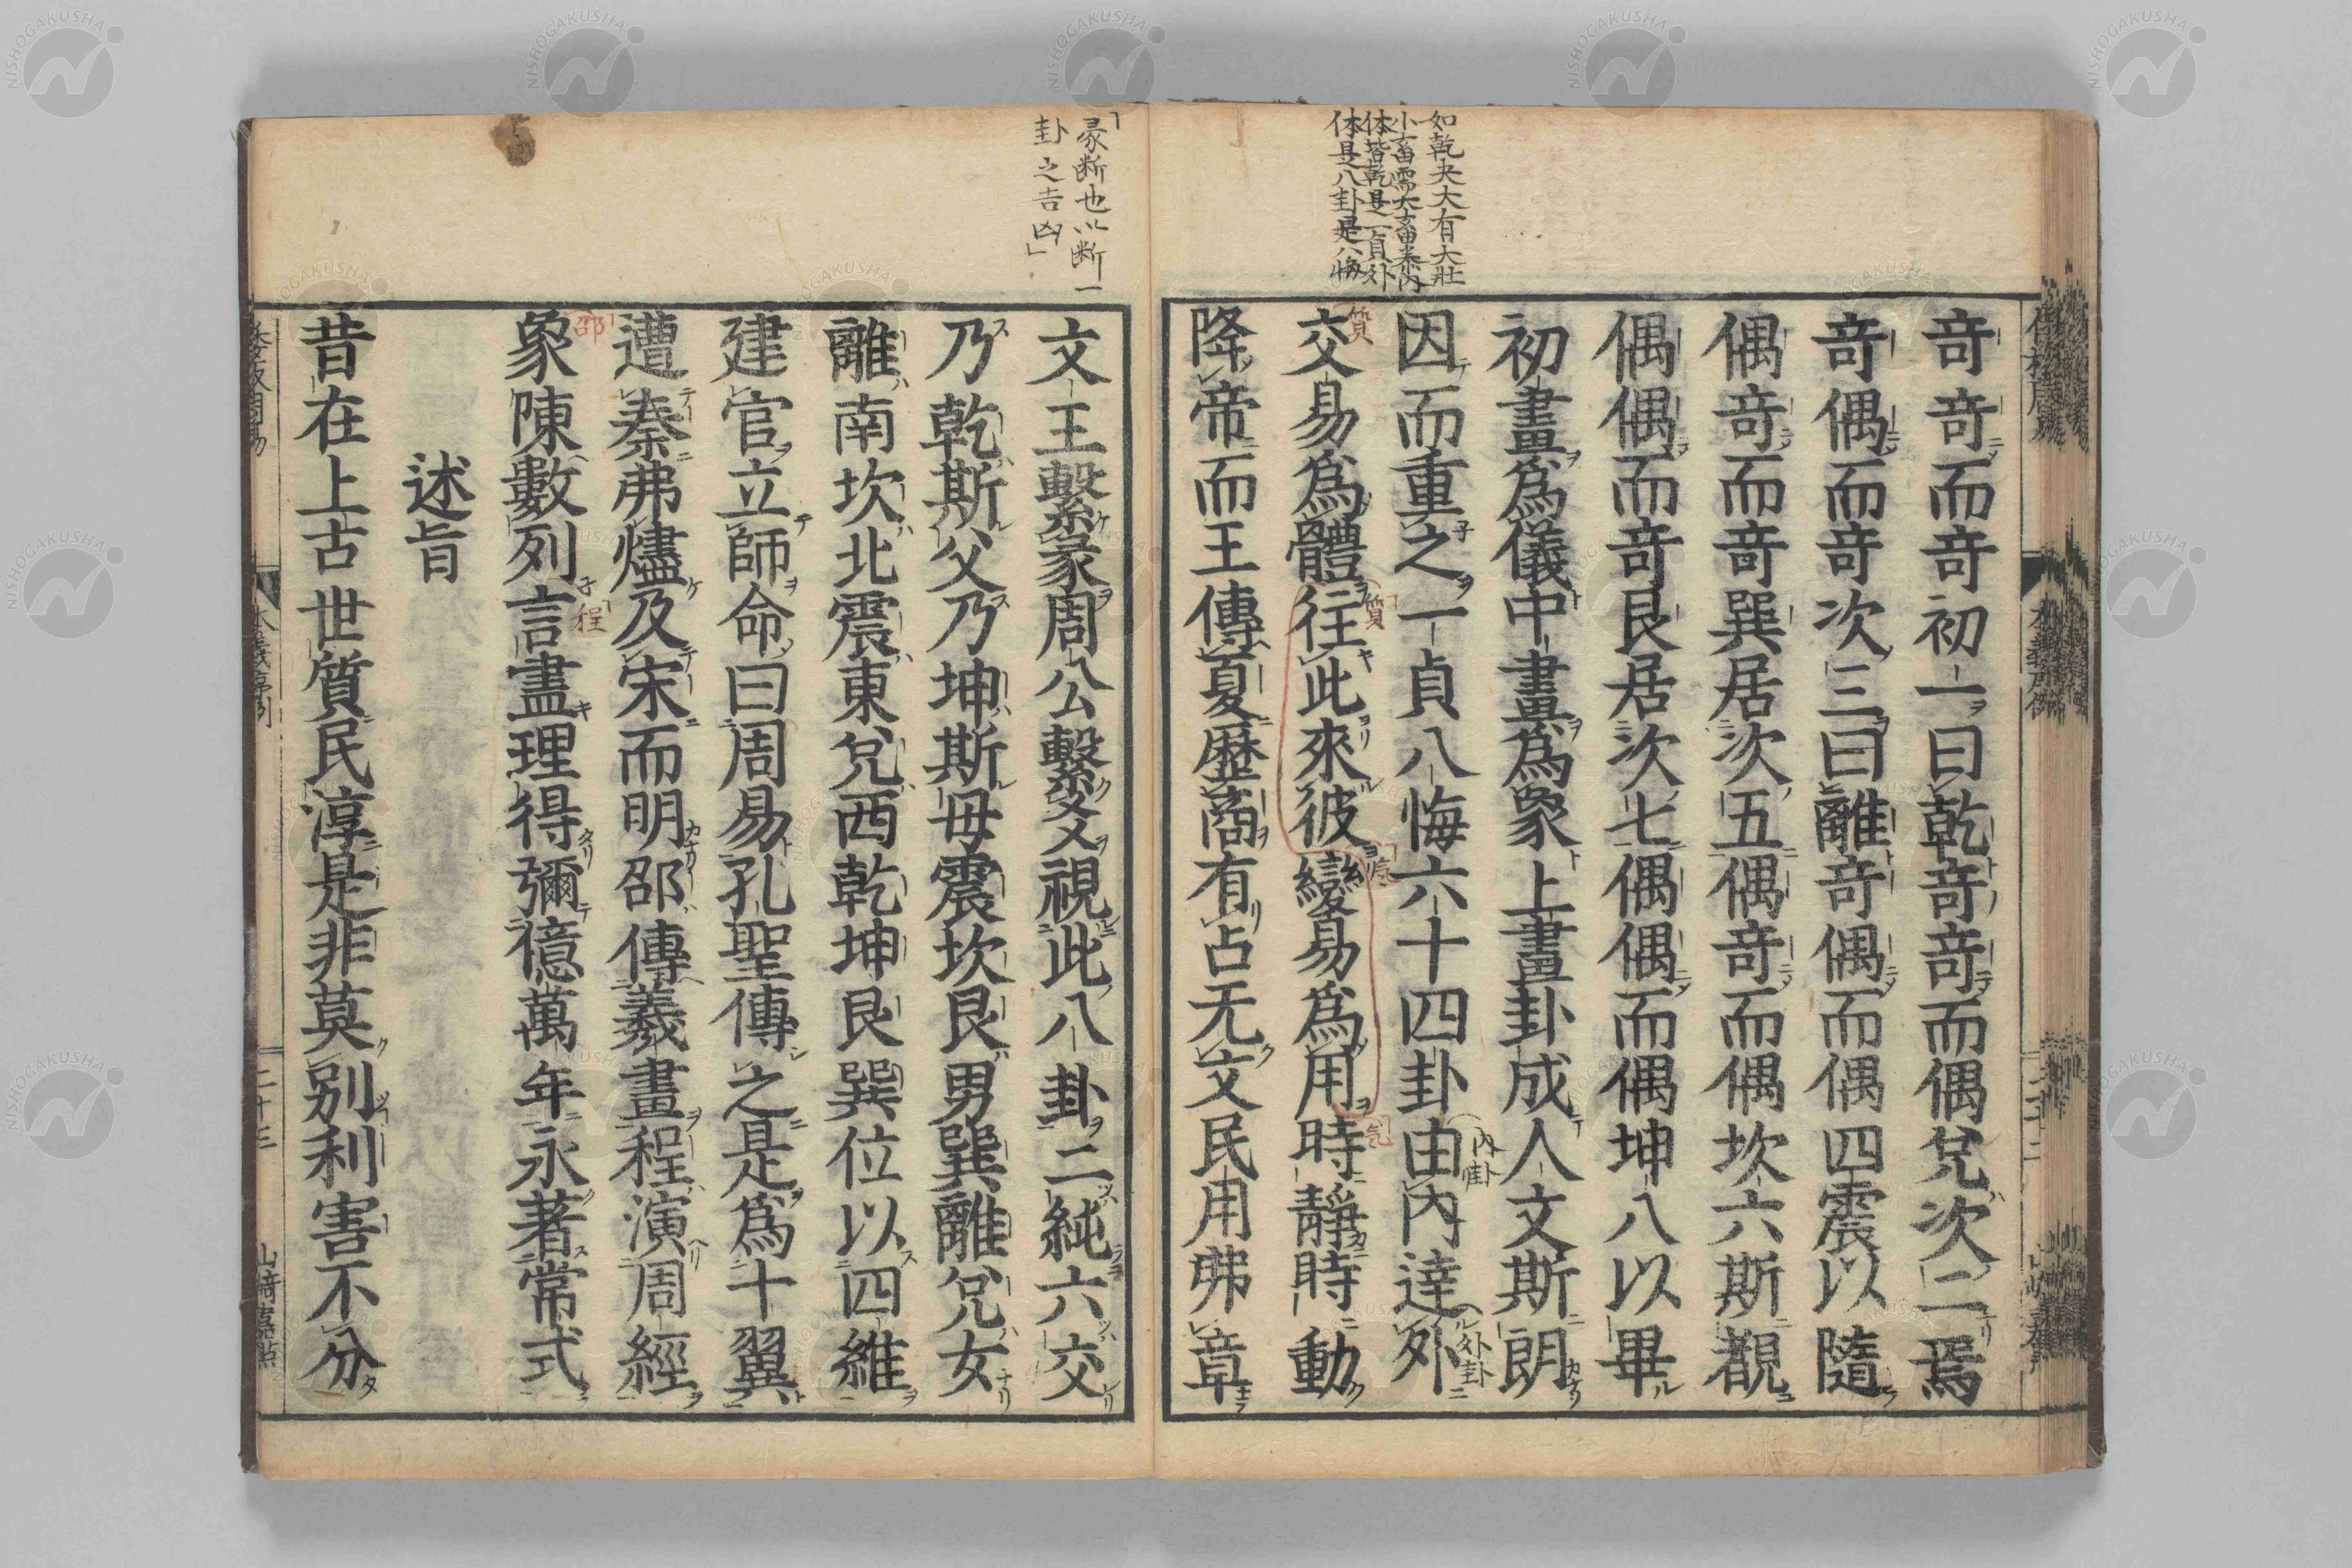 如乾夬大有大壯
小畜需大畜泰內
体皆乾是一貞外
体是八卦是八悔
奇奇而奇初一曰乾奇奇而偶兌次二焉
奇偶而奇次三曰離奇偶而偶四震以隨
偶奇而奇巽居次五偶奇而偶坎六斯覩
偶偶而奇艮居次七偶偶而偶坤八以畢
初畫爲儀中畫爲象上畫卦成人文斯朗
因而重之一貞八悔六十四卦由內達外
內卦
外卦
交易爲體往此來彼變易爲用時靜時動
質
質
氣
降帝而王傳夏歷商有占无文民用弗章
彖断也以断一
卦之吉凶
文王繫彖周公繫爻視此八卦二純六交
乃乾斯父乃坤斯母震坎艮男巽離兌女
離南坎北震東兌西乾坤艮巽位以四維
建官立師命曰周易孔聖傳之是爲十翼
遭秦弗燼及宋而明邵傳羲畫程演周經
象陳數列言盡理得彌億萬年永著常式
邵子
程
述旨
昔在上古世質民淳是非莫別利害不分
二十三
山崎嘉點
NISHOGAKUSHA